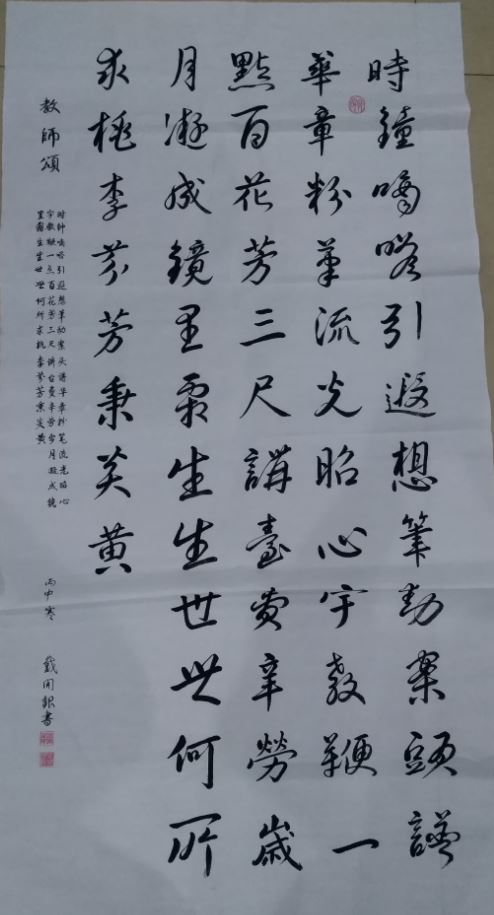 時鐘嘀嗒引遐想筆劲案頭譜
華章粉筆流光昭心宇教鞭一
點百花芳三尺講臺費辛勞歲
月凝成鏡里霜生生世世何所
求桃李芬芳秉炎黄
教師頌
时钟嘀嗒引遐想笔劲案头谱华章粉笔流光昭心
宇教鞭一点百花芳三尺讲台费辛劳岁月凝成镜
里霜生生世世何所求桃李芬芳秉炎黄
丙申寒 戴開銀書